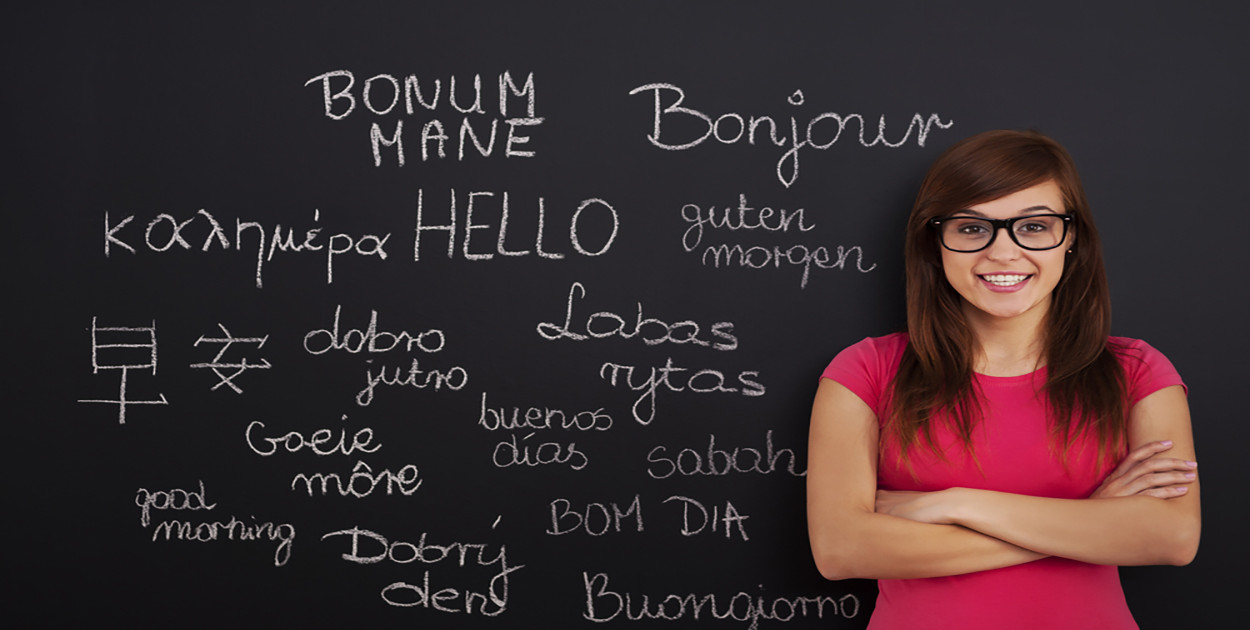 BONUM
MANE
Bonjour
καλημέρα
HELLO
guten
morgen
早
dobro
jutro
Labas
rytas
buenos
días
Goeie
môre
sabah
good
morning
BOM DIA
Dobrý
den
Buongiorno